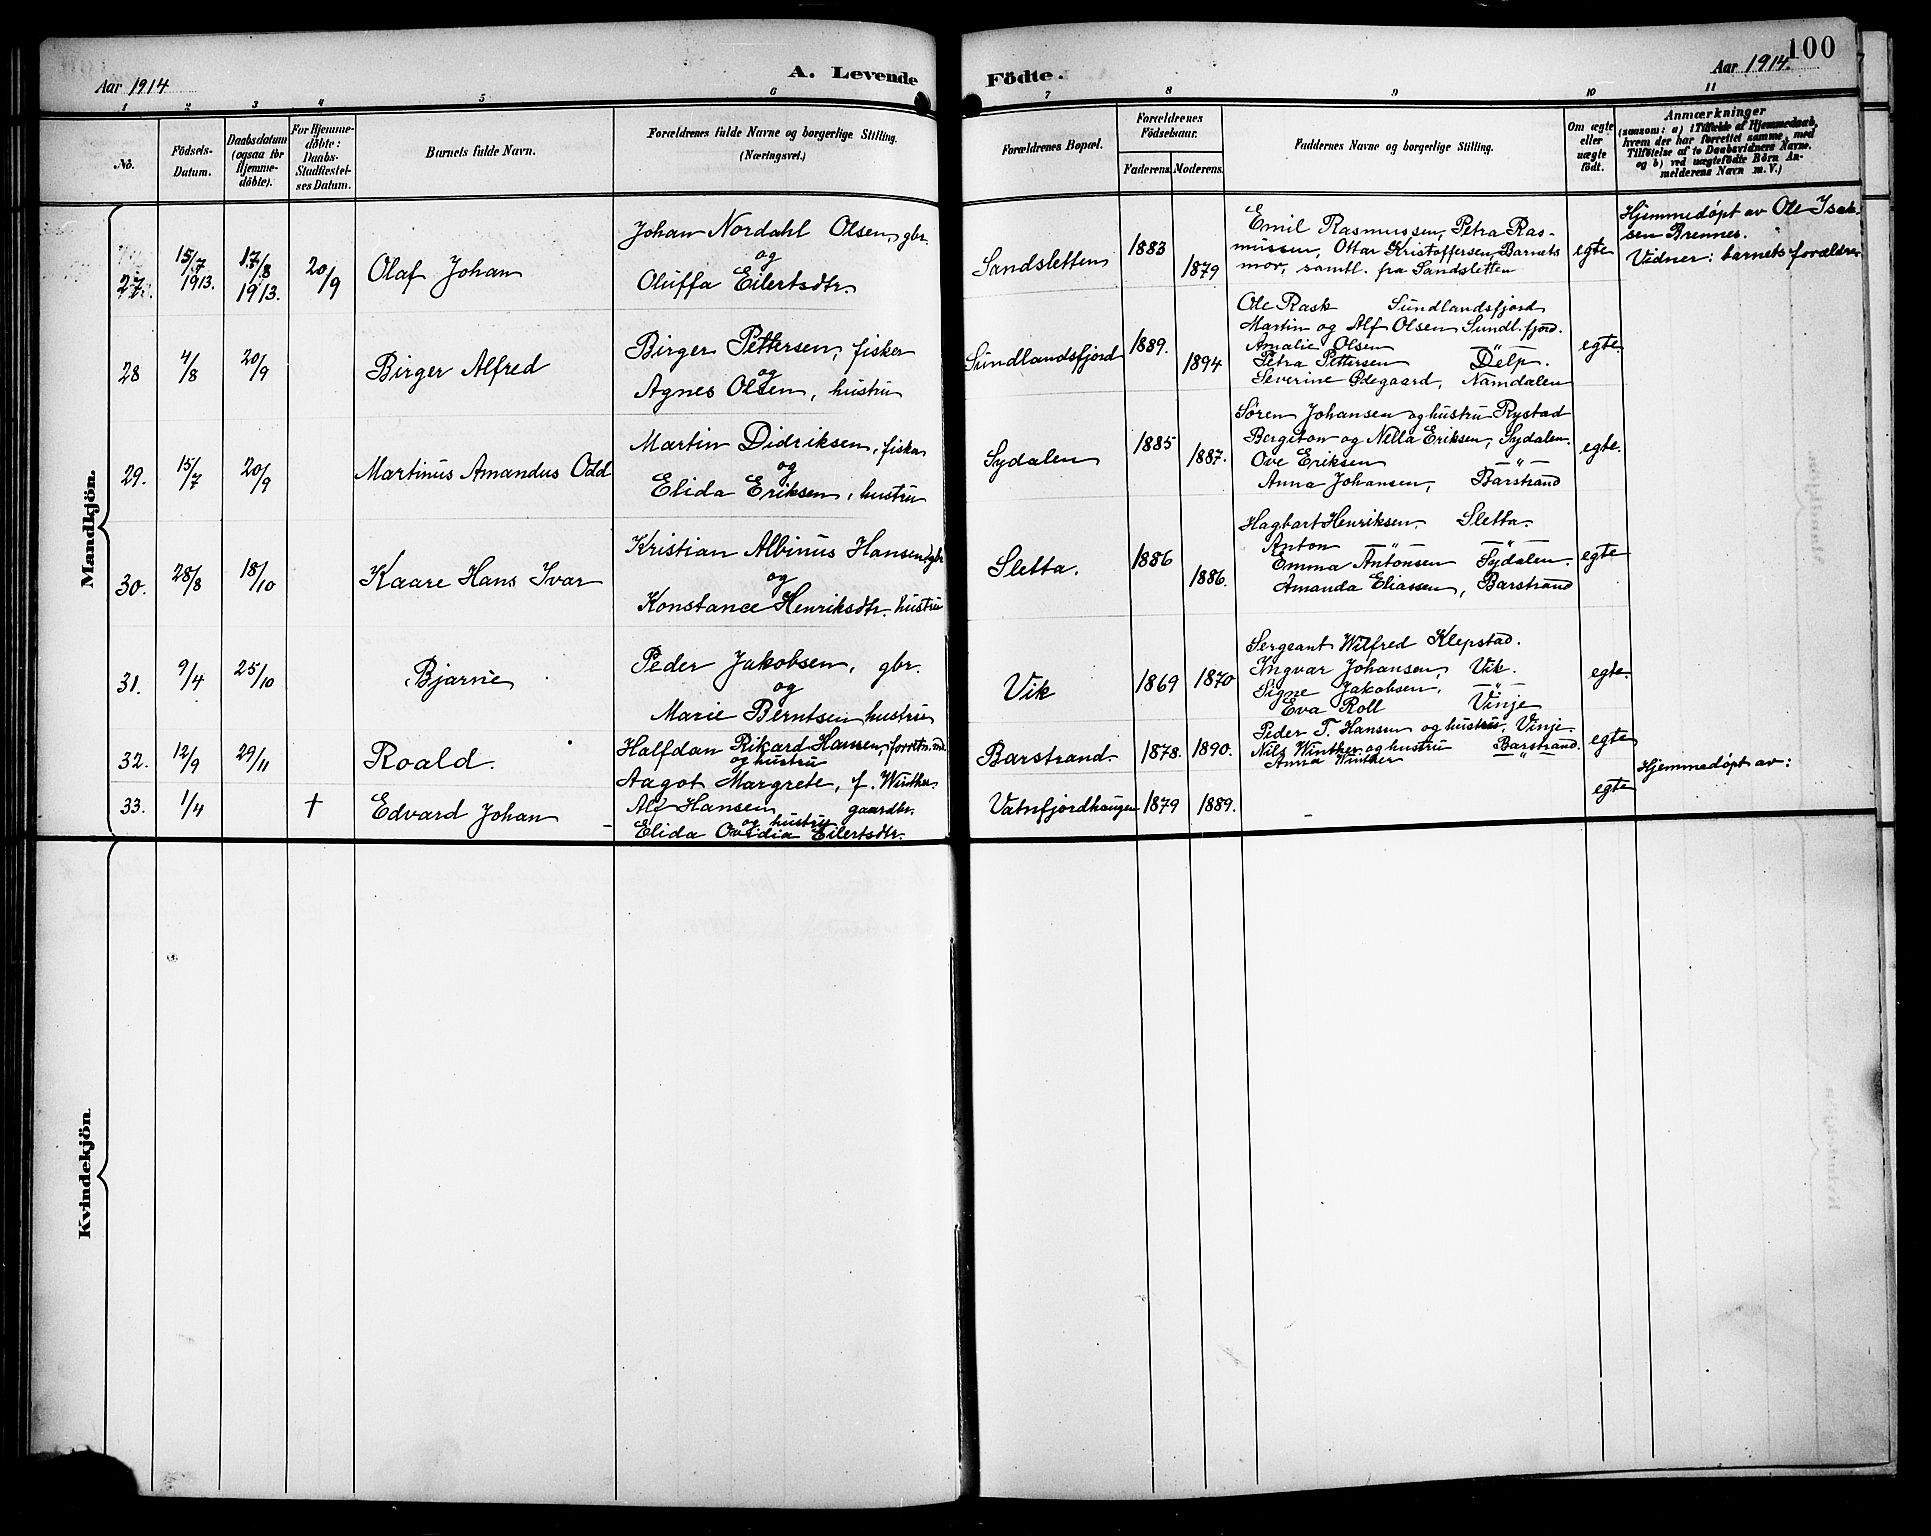 100
Aar 1914
A. Levende
Födte.
Aar 1914.
1 2 3 4 5 6 7 8 9 10 11
No.
Födsels-
Datum.
Daabsdatum
(ogsaa for
Hjemme-
döbte).
For Hjemme-
döbte:
Daabs-
Stadfæstel-
ses Datum.
Barnets fulde Navn.
Forældrenes fulde Navne og borgerlige Stilling.
(Næringsvei.)
Forældrenes Bopæl.
Forældrenes
Födselsaar.
Faderens. Moderens.
Faddernes Navne og borgerlige Stilling.
Om ægte
eller
uægte
født.
Anmærkninger
(saasom: a) i Tilfælde af Hjemmedaab,
hvem der har forrettet samme, med
Tilföielse af to Daabsvidners Navne.
og b) ved uægtefödte Börn An-
melderens Navn m. V.)
Mandkjön.
27.
15/7
1913.
17/8
1913.
20/9
Olaf Johan
Johan Nordahl Olsen, gbr.
og
Oluffa Eilertsdtr.
Sandsletten
1883
1879
Emil Rasmussen, Petra Ras-
mussen, Ottar Kristoffersen, Barnets
mor, samtl. fra Sandsletten
egte
Hjemmedøpt av Ole Isak-
sen Brennes.
Vidner: barnets forældre
28
4/8
20/9
Birger Alfred
Birger Pettersen, fisker
og
Agnes Olsen, hustru
Sundlandsfjord
1889.
1894
Ole Rask Sundlandsfjord
Martin og Alf Olsen Sundl.fjord.
Amalie Olsen —"—
Petra Pettersen Delp.
Severine Ødegaard, Namdalen
egte.
29.
15/7
20/9
Martinus Amandus Odd
Martin Didriksen, fisker
og
Elida Eriksen, hustru
Sydalen
1885
1887.
Søren Johansen og hustru Rystad
Bergiton og Nella Eriksen, Sydalen.
Ove Eriksen —"—
Anna Johansen, Barstrand
egte.
30.
28/8
18/10
Kaare Hans Ivar
Kristian Albinus Hansen, gbr
og
Konstance Henriksdtr. hustru
Sletta.
1886
1886.
Hagbart Henriksen, Sletta.
Anton —"— —"—
Emma Antonsen Sydalen.
Amanda Eliassen, Barstrand
egte
31.
9/4
25/10
Bjarne
Peder Jakobsen, gbr.
og
Marie Berntsen hustru
Vik
1869 1870
Sergeant Wilfred Klepstad.
Ingvar Johansen, Vik.
Signe Jakobsen, —"—
Eva Roll Vinje
egte.
32.
12/9
29/11
Roald.
Halfdan Rikard Hansen, forretn.md.
og hustru
Aagot Margrete, f. Winther.
Barstrand.
1878. 1890.
Peder T. Hansen og hustru, Vinje
Nils Winther og hustru Barstrand.
Anna Winther —"—
egte
33.
1/4
†
Edvard Johan
Alf Hansen gaardbr.
og hustru
Elida Ovidia Eilertsdtr.
Vatnfjordhaugen
1879 1889.
egte
Hjemmedøpt av:
Kvindekjön.